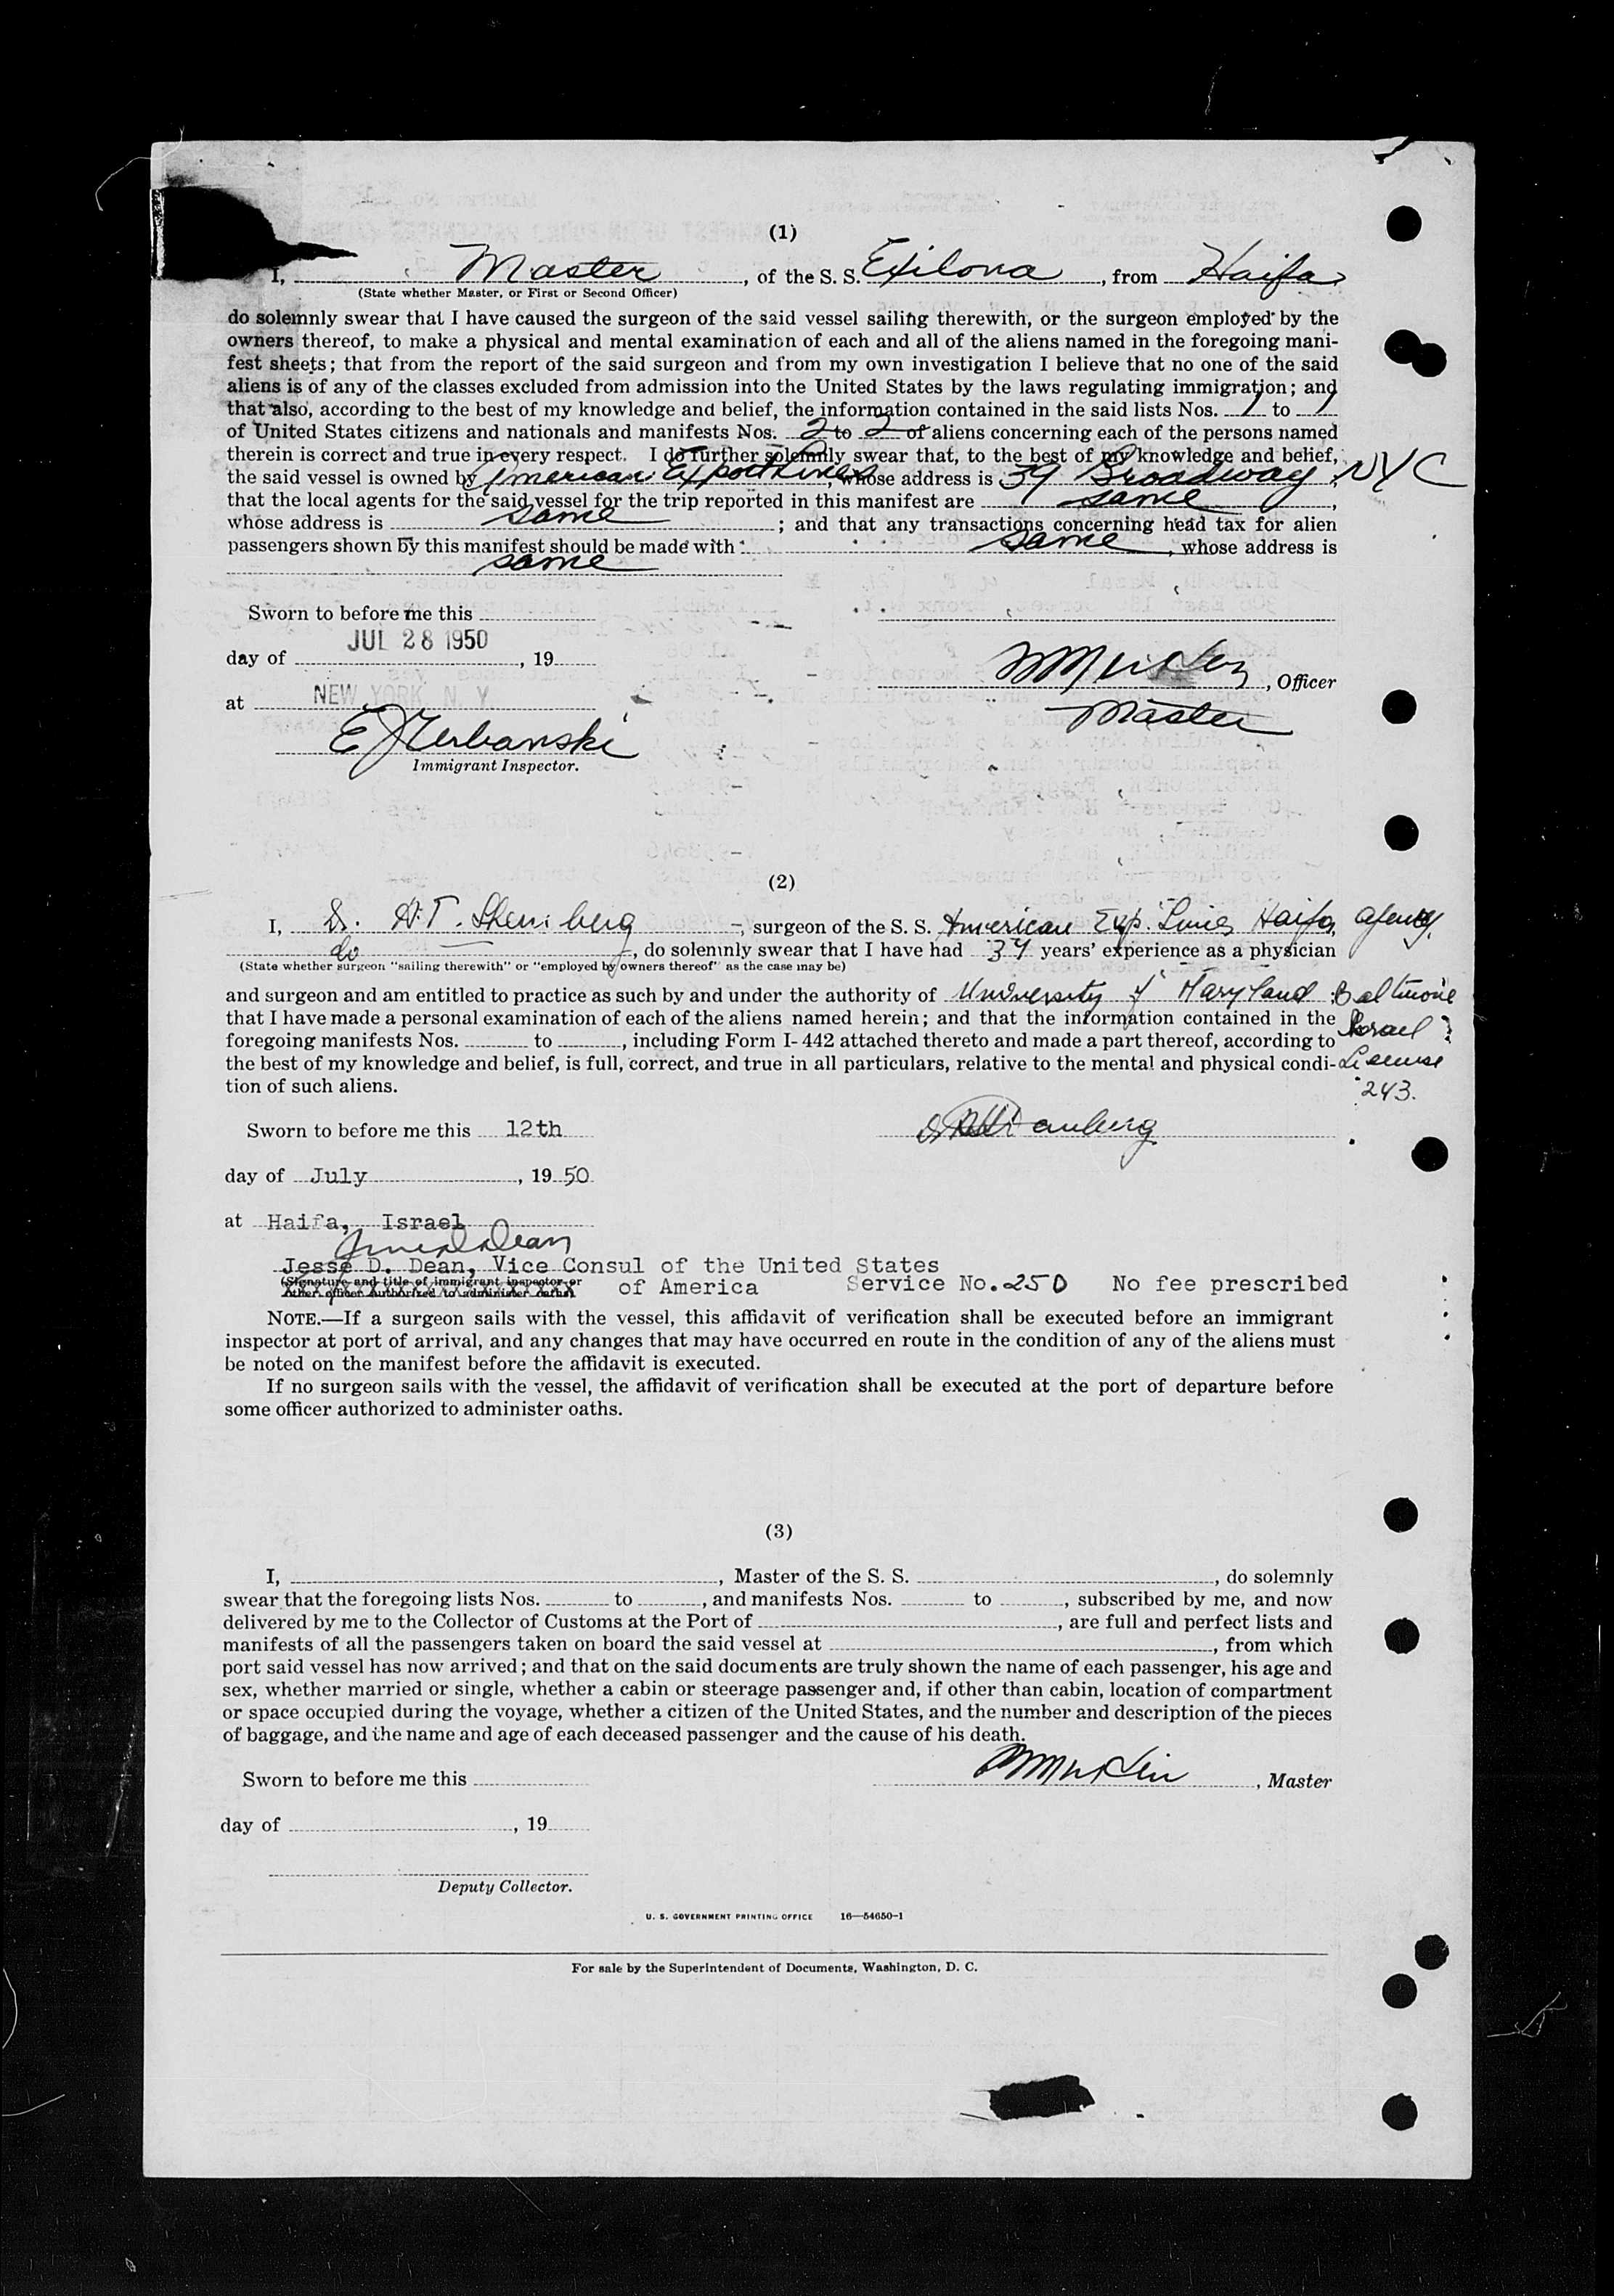 (1)
I, Master, of the S. S. Exilona, from Haifa,
(State whether Master, or First or Second Officer)
do solemnly swear that I have caused the surgeon of the said vessel sailing therewith, or the surgeon employed by the
owners thereof, to make a physical and mental examination of each and all of the aliens named in the foregoing mani-
fest sheets; that from the report of the said surgeon and from my own investigation I believe that no one of the said
aliens is of any of the classes excluded from admission into the United States by the laws regulating immigration; and
that also, according to the best of my knowledge and belief, the information contained in the said lists Nos. 1 to 1
of United States citizens and nationals and manifests Nos. 2 to 2 of aliens concerning each of the persons named
therein is correct and true in every respect. I do further solemnly swear that, to the best of my knowledge and belief,
the said vessel is owned by American Export Lines, whose address is 39 Broadway, NYC
that the local agents for the said vessel for the trip reported in this manifest are same,
whose address is same; and that any transactions concerning head tax for alien
passengers shown by this manifest should be made with same, whose address is
same
Sworn to before me this
JUL 28 1950
day of , 19
, Officer
at NEW YORK N. Y.
Master
Immigrant Inspector.
(2)
I, Dr. H. T. , surgeon of the S. S. American Exp. Lines Haifa, agency.
do, do solemnly swear that I have had 37 years' experience as a physician
(State whether surgeon "sailing therewith" or "employed by owners thereof" as the case may be)
and surgeon and am entitled to practice as such by and under the authority of University of Maryland; Baltimore
that I have made a personal examination of each of the aliens named herein; and that the information contained in the Israel
foregoing manifests Nos. to , including Form I-442 attached thereto and made a part thereof, according to
the best of my knowledge and belief, is full, correct, and true in all particulars, relative to the mental and physical condi- License
tion of such aliens. 243.
Sworn to before me this 12th
day of July, 1950
at Haifa, Israel
Jesse D. Dean, Vice Consul of the United States
(Signature and title of immigrant inspector or
other officer authorized to administer oaths) of America Service No. 250 No fee prescribed
NOTE.—If a surgeon sails with the vessel, this affidavit of verification shall be executed before an immigrant
inspector at port of arrival, and any changes that may have occurred en route in the condition of any of the aliens must
be noted on the manifest before the affidavit is executed.
If no surgeon sails with the vessel, the affidavit of verification shall be executed at the port of departure before
some officer authorized to administer oaths.
(3)
I, , Master of the S. S. , do solemnly
swear that the foregoing lists Nos. to , and manifests Nos. to , subscribed by me, and now
delivered by me to the Collector of Customs at the Port of , are full and perfect lists and
manifests of all the passengers taken on board the said vessel at , from which
port said vessel has now arrived; and that on the said documents are truly shown the name of each passenger, his age and
sex, whether married or single, whether a cabin or steerage passenger and, if other than cabin, location of compartment
or space occupied during the voyage, whether a citizen of the United States, and the number and description of the pieces
of baggage, and the name and age of each deceased passenger and the cause of his death.
Sworn to before me this
, Master
day of , 19
Deputy Collector.
U. S. GOVERNMENT PRINTING OFFICE 16—54650-1
For sale by the Superintendent of Documents, Washington, D. C.